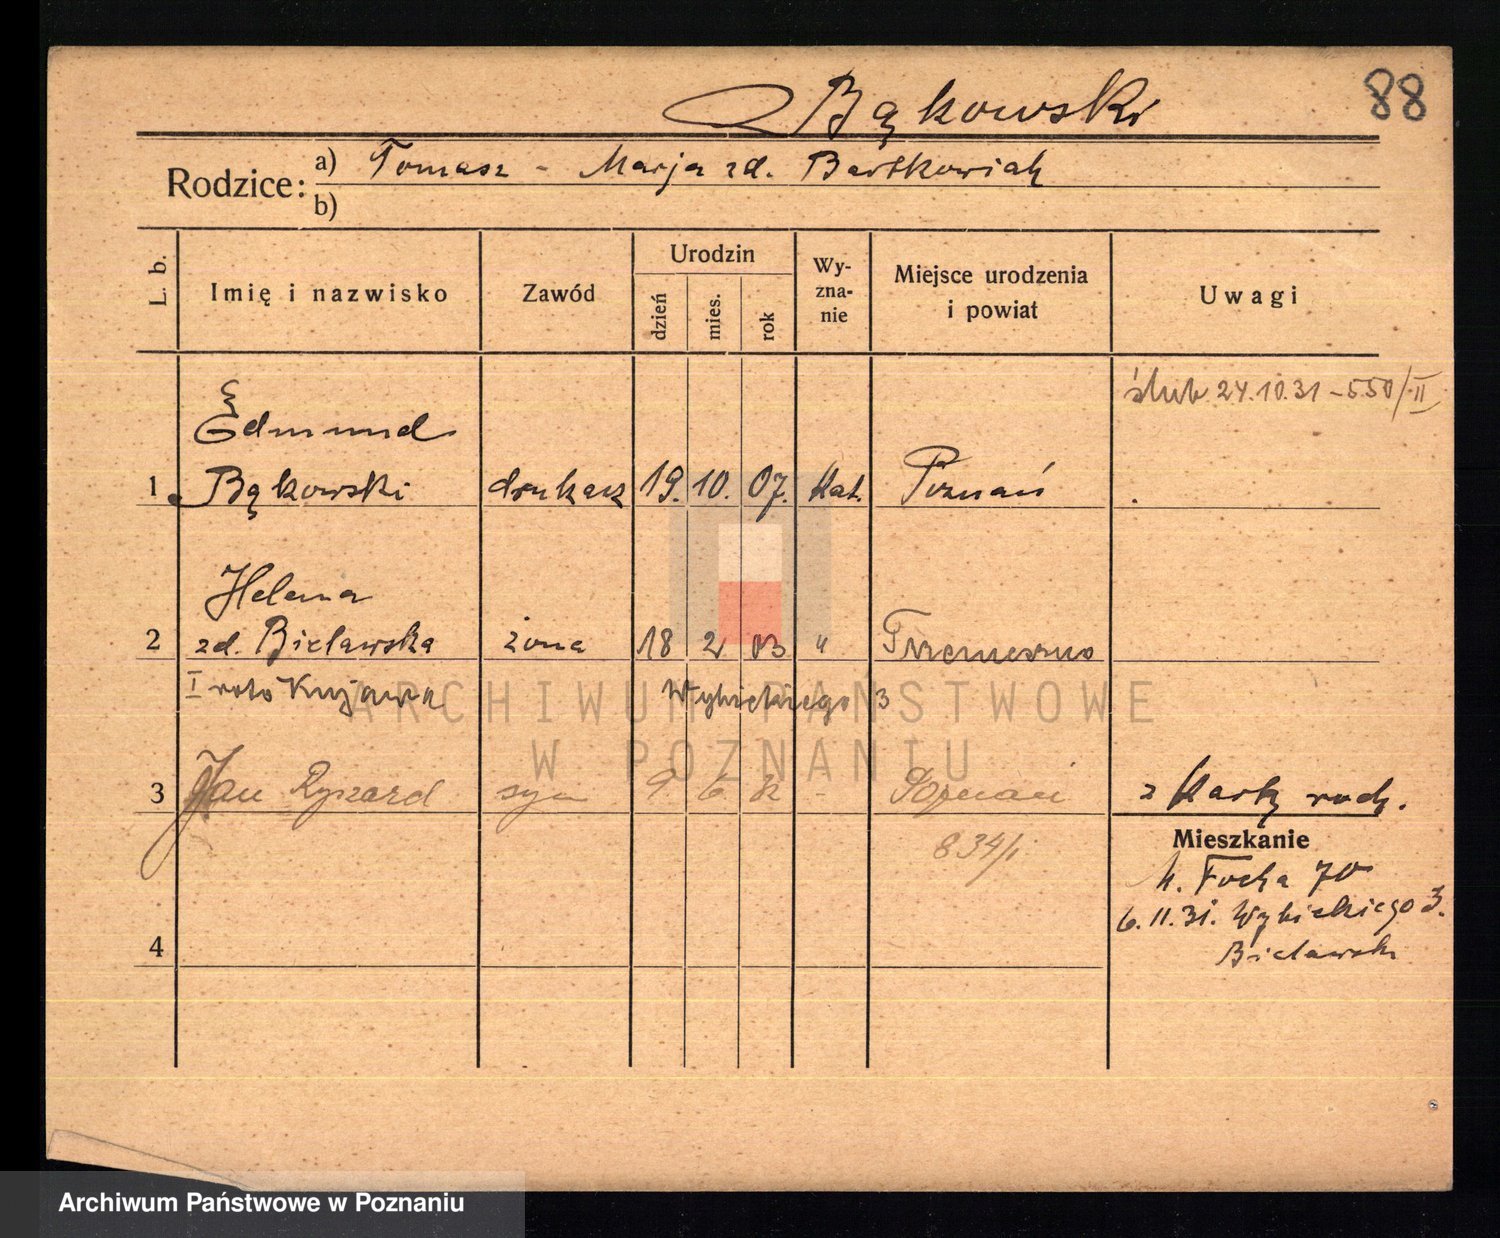 Bąkowski
88
Rodzice: a) Tomasz - Marja zd. Bartkowiak
b)
L. b. Imię i nazwisko Zawód Urodzin dzień mies. rok Wy-zna-nie Miejsce urodzenia i powiat Uwagi
ślub 24.10.31 - 550/II
Edmund
1 Bąkowski drukarz 19. 10. 07. kat. Poznań
Helena
2 zd. Bielawska żona 18 2 03 " Trzemeszno
I voto Kujawa Wybickiego 3
ARCHIWUM PAŃSTWOWE
W POZNANIU
3 Jan Ryszard syn 9 6 - Poznań z karty rodz.
834/I
Mieszkanie
M. Focha 70
6. 11. 31. Wybickiego 3.
Bielawski
4
Archiwum Państwowe w Poznaniu